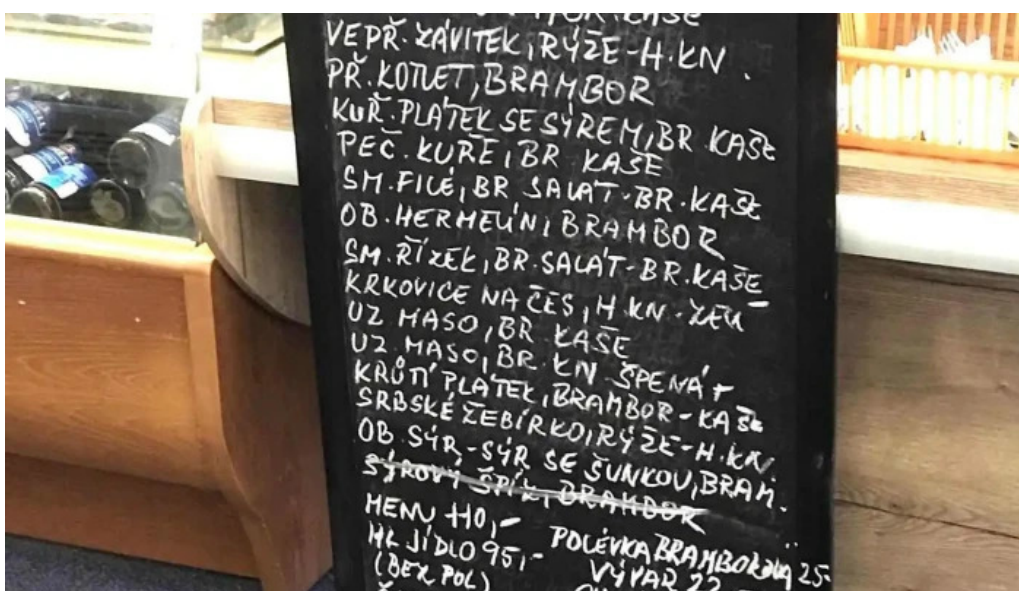 KAŠE
VEPŘ. ZÁVITEK, RÝŽE-H.KN.
PŘ. KOTLET, BRAMBOR
KUŘ. PLÁTEK SE SÝREM, BR. KAŠE
PEČ. KUŘE, BR KAŠE
SM. FILÉ, BR SALÁT-BR. KAŠE
OB. HERMELÍN, BRAMBOR
SM. ŘÍZEK, BR. SALÁT-BR. KAŠE
KRKOVICE NA ČES, H KN-ZELÍ
UZ MASO, BR KAŠE
UZ. MASO, BR. KN ŠPENÁT
KRŮTÍ PLÁTEK, BRAMBOR-KAŠE
SRBSKÉ ŽEBÍRKO, RÝŽE-H.KN.
OB. SÝR-SÝR SE ŠUNKOU, BRAM.
SÝROVÝ ŠPÍZ, BRAMBOR
MENU 110,-
HL JÍDLO 95,-
(BEZ POL)
POLÉVKA BRAMBOROVÁ 25-
VÝVAR 22